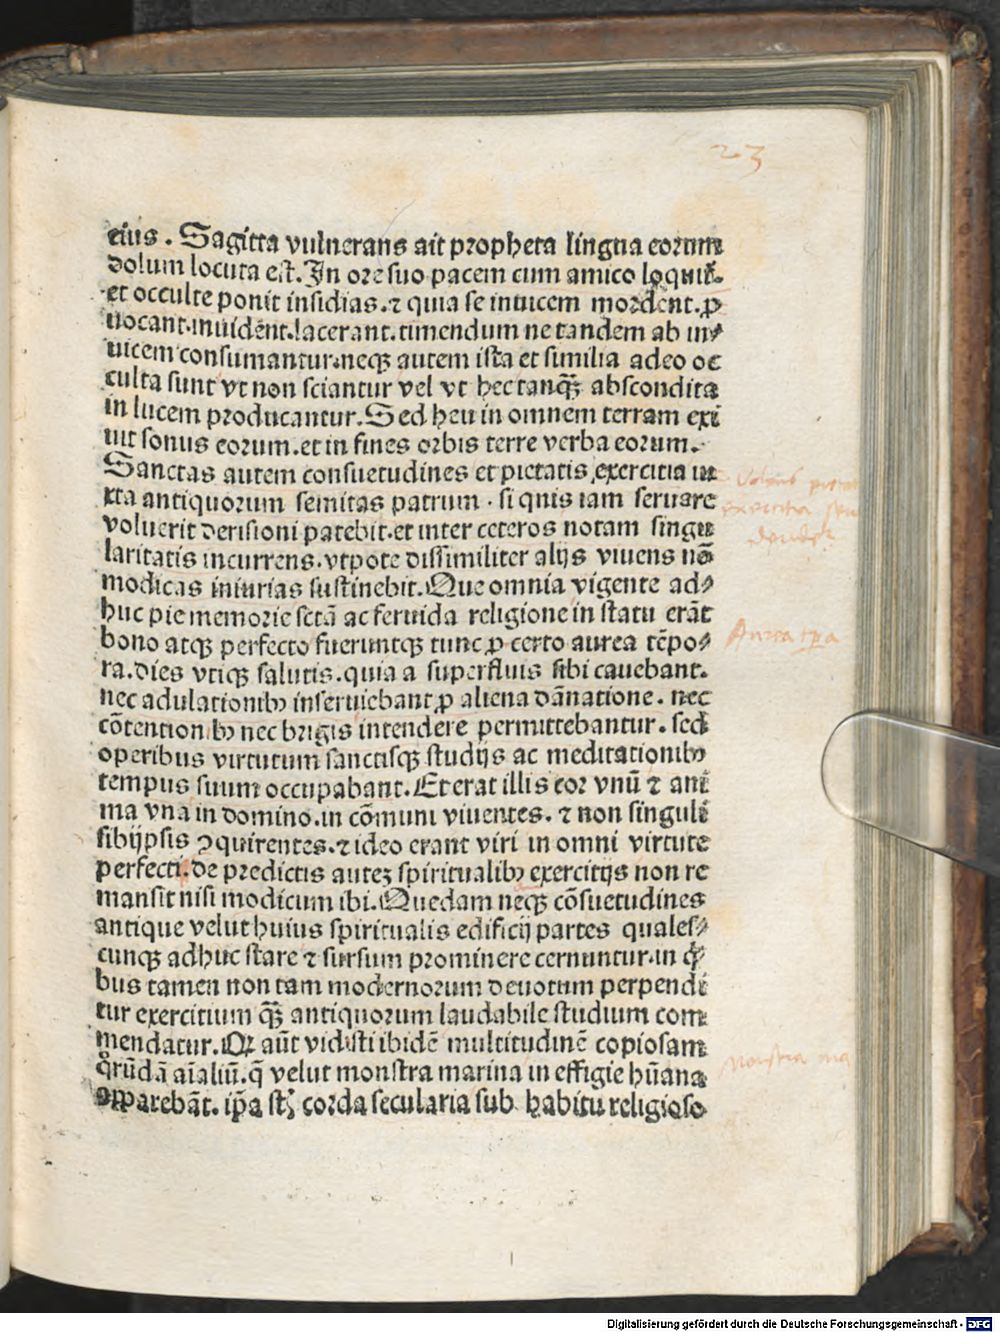 23
eius. Sagitta vulnerans ait propheta lingua eorum
dolum locuta est. In ore suo pacem cum amico loquit̃.
et occulte ponit insidias. ⁊ quia se inuicem mordent. ꝓ
uocant. inuidẽt. lacerant. timendum ne tandem ab in⸗
uicem consumantur. neqꝫ autem ista et similia adeo oc
culta sunt vt non sciantur vel vt hec tanqꝫ̃ abscondita
in lucem producantur. Sed heu in omnem terram exi
uit sonus eorum. et in fines orbis terre verba eorum.
Sanctas autem consuetudines et pietatis exercitia iu
xta antiquorum semitas patrum. si quis iam seruare
voluerit derisioni patebit. et inter ceteros notam singu
laritatis incurrens. vtpote dissimiliter alijs viuens nõ
modicas iniurias sustinebit. Que omnia vigente ad⸗
huc pie memorie sctã ac feruida religione in statu erãt
bono atqꝫ perfecto fueruntqꝫ tunc ꝓ certo aurea tẽpo⸗
ra. dies vtiqꝫ salutis. quia a superfluis sibi cauebant.
nec adulationibꝫ inseruiebant ꝓ aliena dãnatione. nec
cõtentionibꝫ nec brigis intendere permittebantur. sed
operibus virtutum sanctisqꝫ studijs ac meditationibꝫ
tempus suum occupabant. Et erat illis cor vnũ ⁊ ani
ma vna in domino. in cõmuni viuentes. ⁊ non singuli
sibijpsis ꝯquirentes. ⁊ ideo erant viri in omni virtute
perfecti. de predictis auteꝫ spiritualibꝫ exercitijs non re
mansit nisi modicum ibi. Quedam neqꝫ cõsuetudines
antique velut huius spiritualis edificij partes quales⸗
cunqꝫ adhuc stare ⁊ sursum prominere cernuntur. in q̃
bus tamen non tam modernorum deuotum perpendi
tur exercitium qꝫ̃ antiquorum laudabile studium com
mendatur. Qꝛ aũt vidisti ibidẽ multitudinẽ copiosam
qrũdã aĩaliũ. q̃ velut monstra marina in effigie hũana
apparebãt. ip̃a sꝫ̃ corda secularia sub habitu religioso
exercitia
Aurea tp̃a
monstra ma
Digitalisierung gefördert durch die Deutsche Forschungsgemeinschaft - DFG